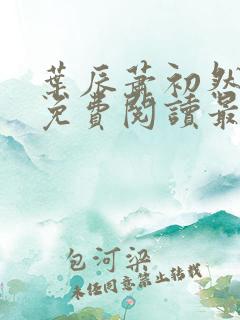 葉辰蕭初然
免費閱讀最
包河梁
未經同意禁止轉載